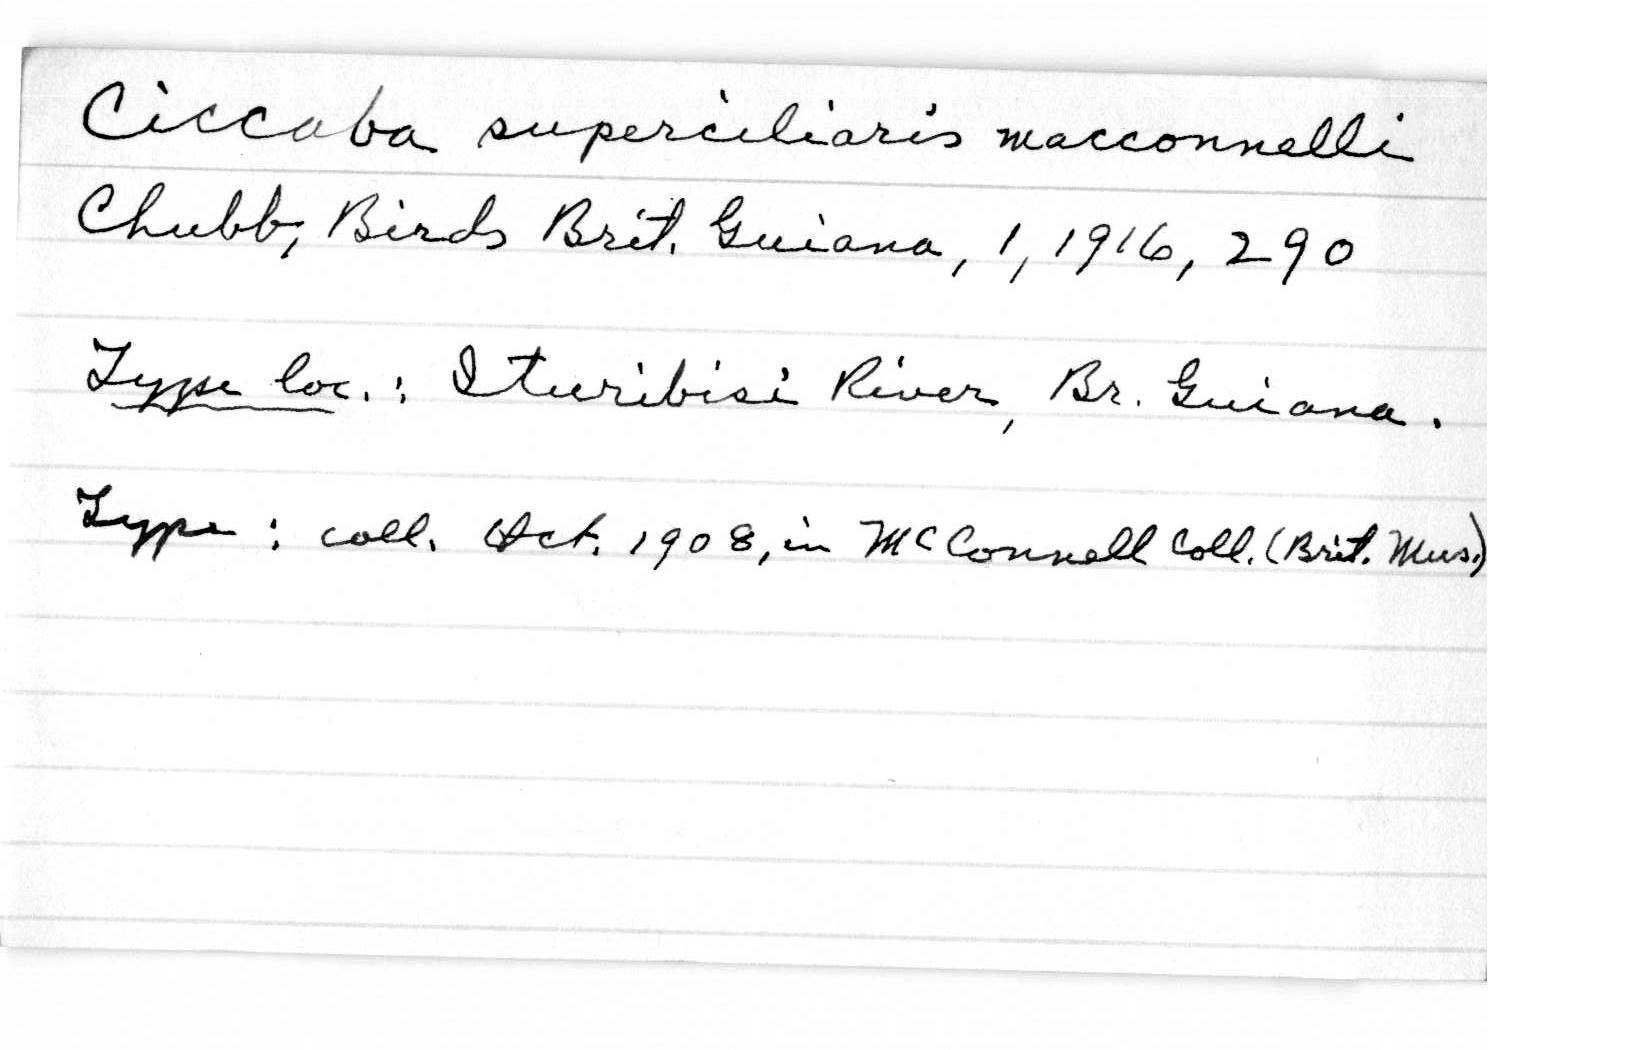 Ciccaba superciliaris macconnelli
Chubb, Birds Brit. Guiana, 1, 1916, 290
Type loc.: Ituribisi River, Br. Guiana.
Type: coll. Oct. 1908, in McConnell Coll. (Brit. Mus.)